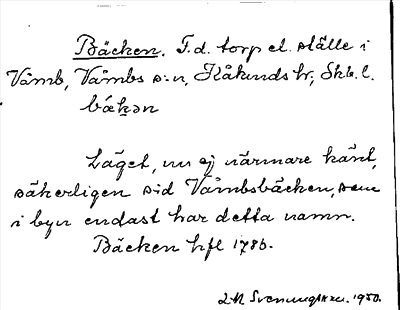 Bäcken. F.d. torp el. ställe i
Våmb, Våmbs s:n, Kåkinds hr, Skb. l.
bäkən
Läget, nu ej närmare känt,
säkerligen vid Våmbsbäcken, som
i byn endast har detta namn.
Bäcken hfl 1786.
Svenungsson. 1950.